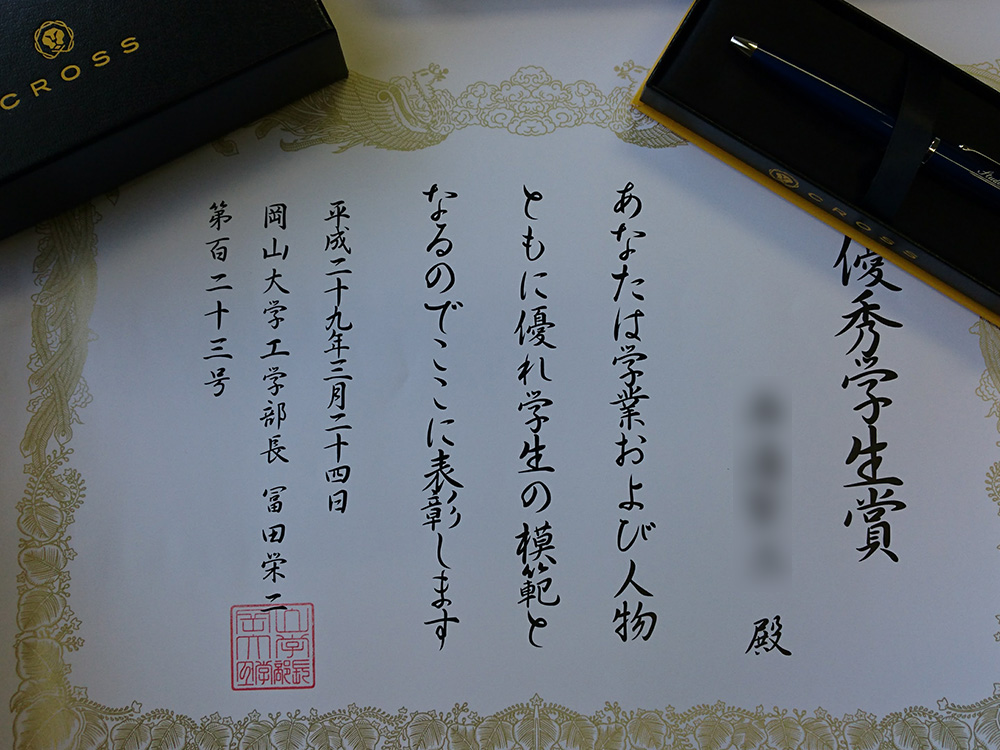 CROSS
CROSS
優秀学生賞
殿
あなたは学業および人物
ともに優れ学生の模範と
なるのでここに表彰します
平成二十九年三月二十四日
岡山大学工学部長 冨田栄二
第百二十三号